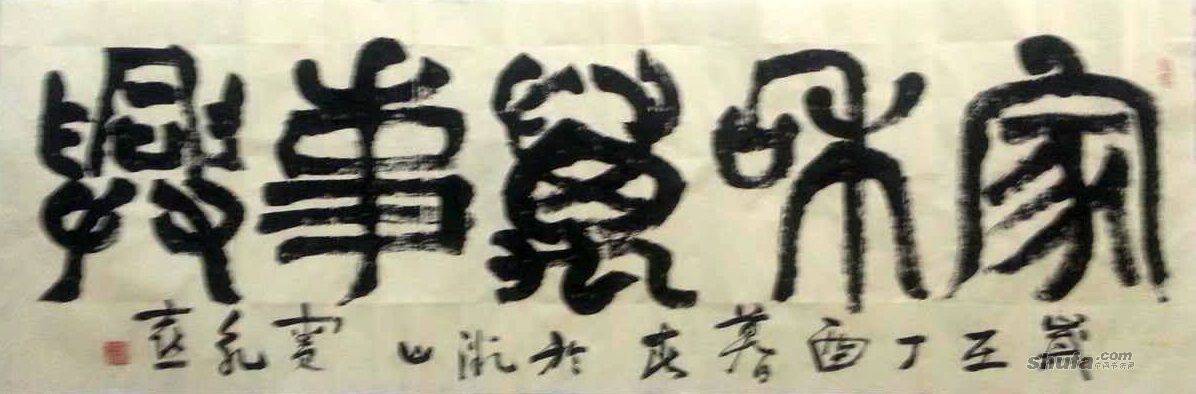 家和萬事興
歲在丁酉暮春於山
shufa.com